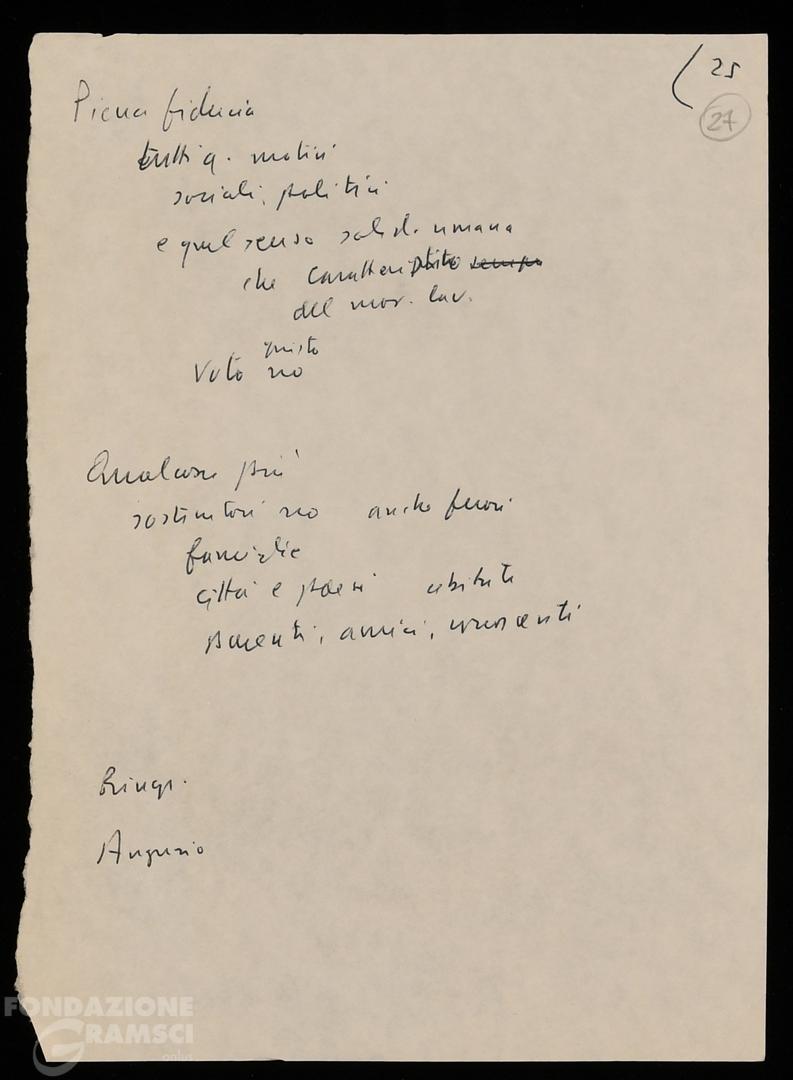 25
27
Piena fiducia
tutti q. motivi
sociali, politici
e quel senso solid. umana
che caratteristico sempre
del mov. lav.
giusto
Voto no
Qualcosa più
sostenitori no anche fuori
famiglie
città e paesi abitate
parenti, amici, conoscenti
Bringr.
Augurio
FONDAZIONE
GRAMSCI
onlus